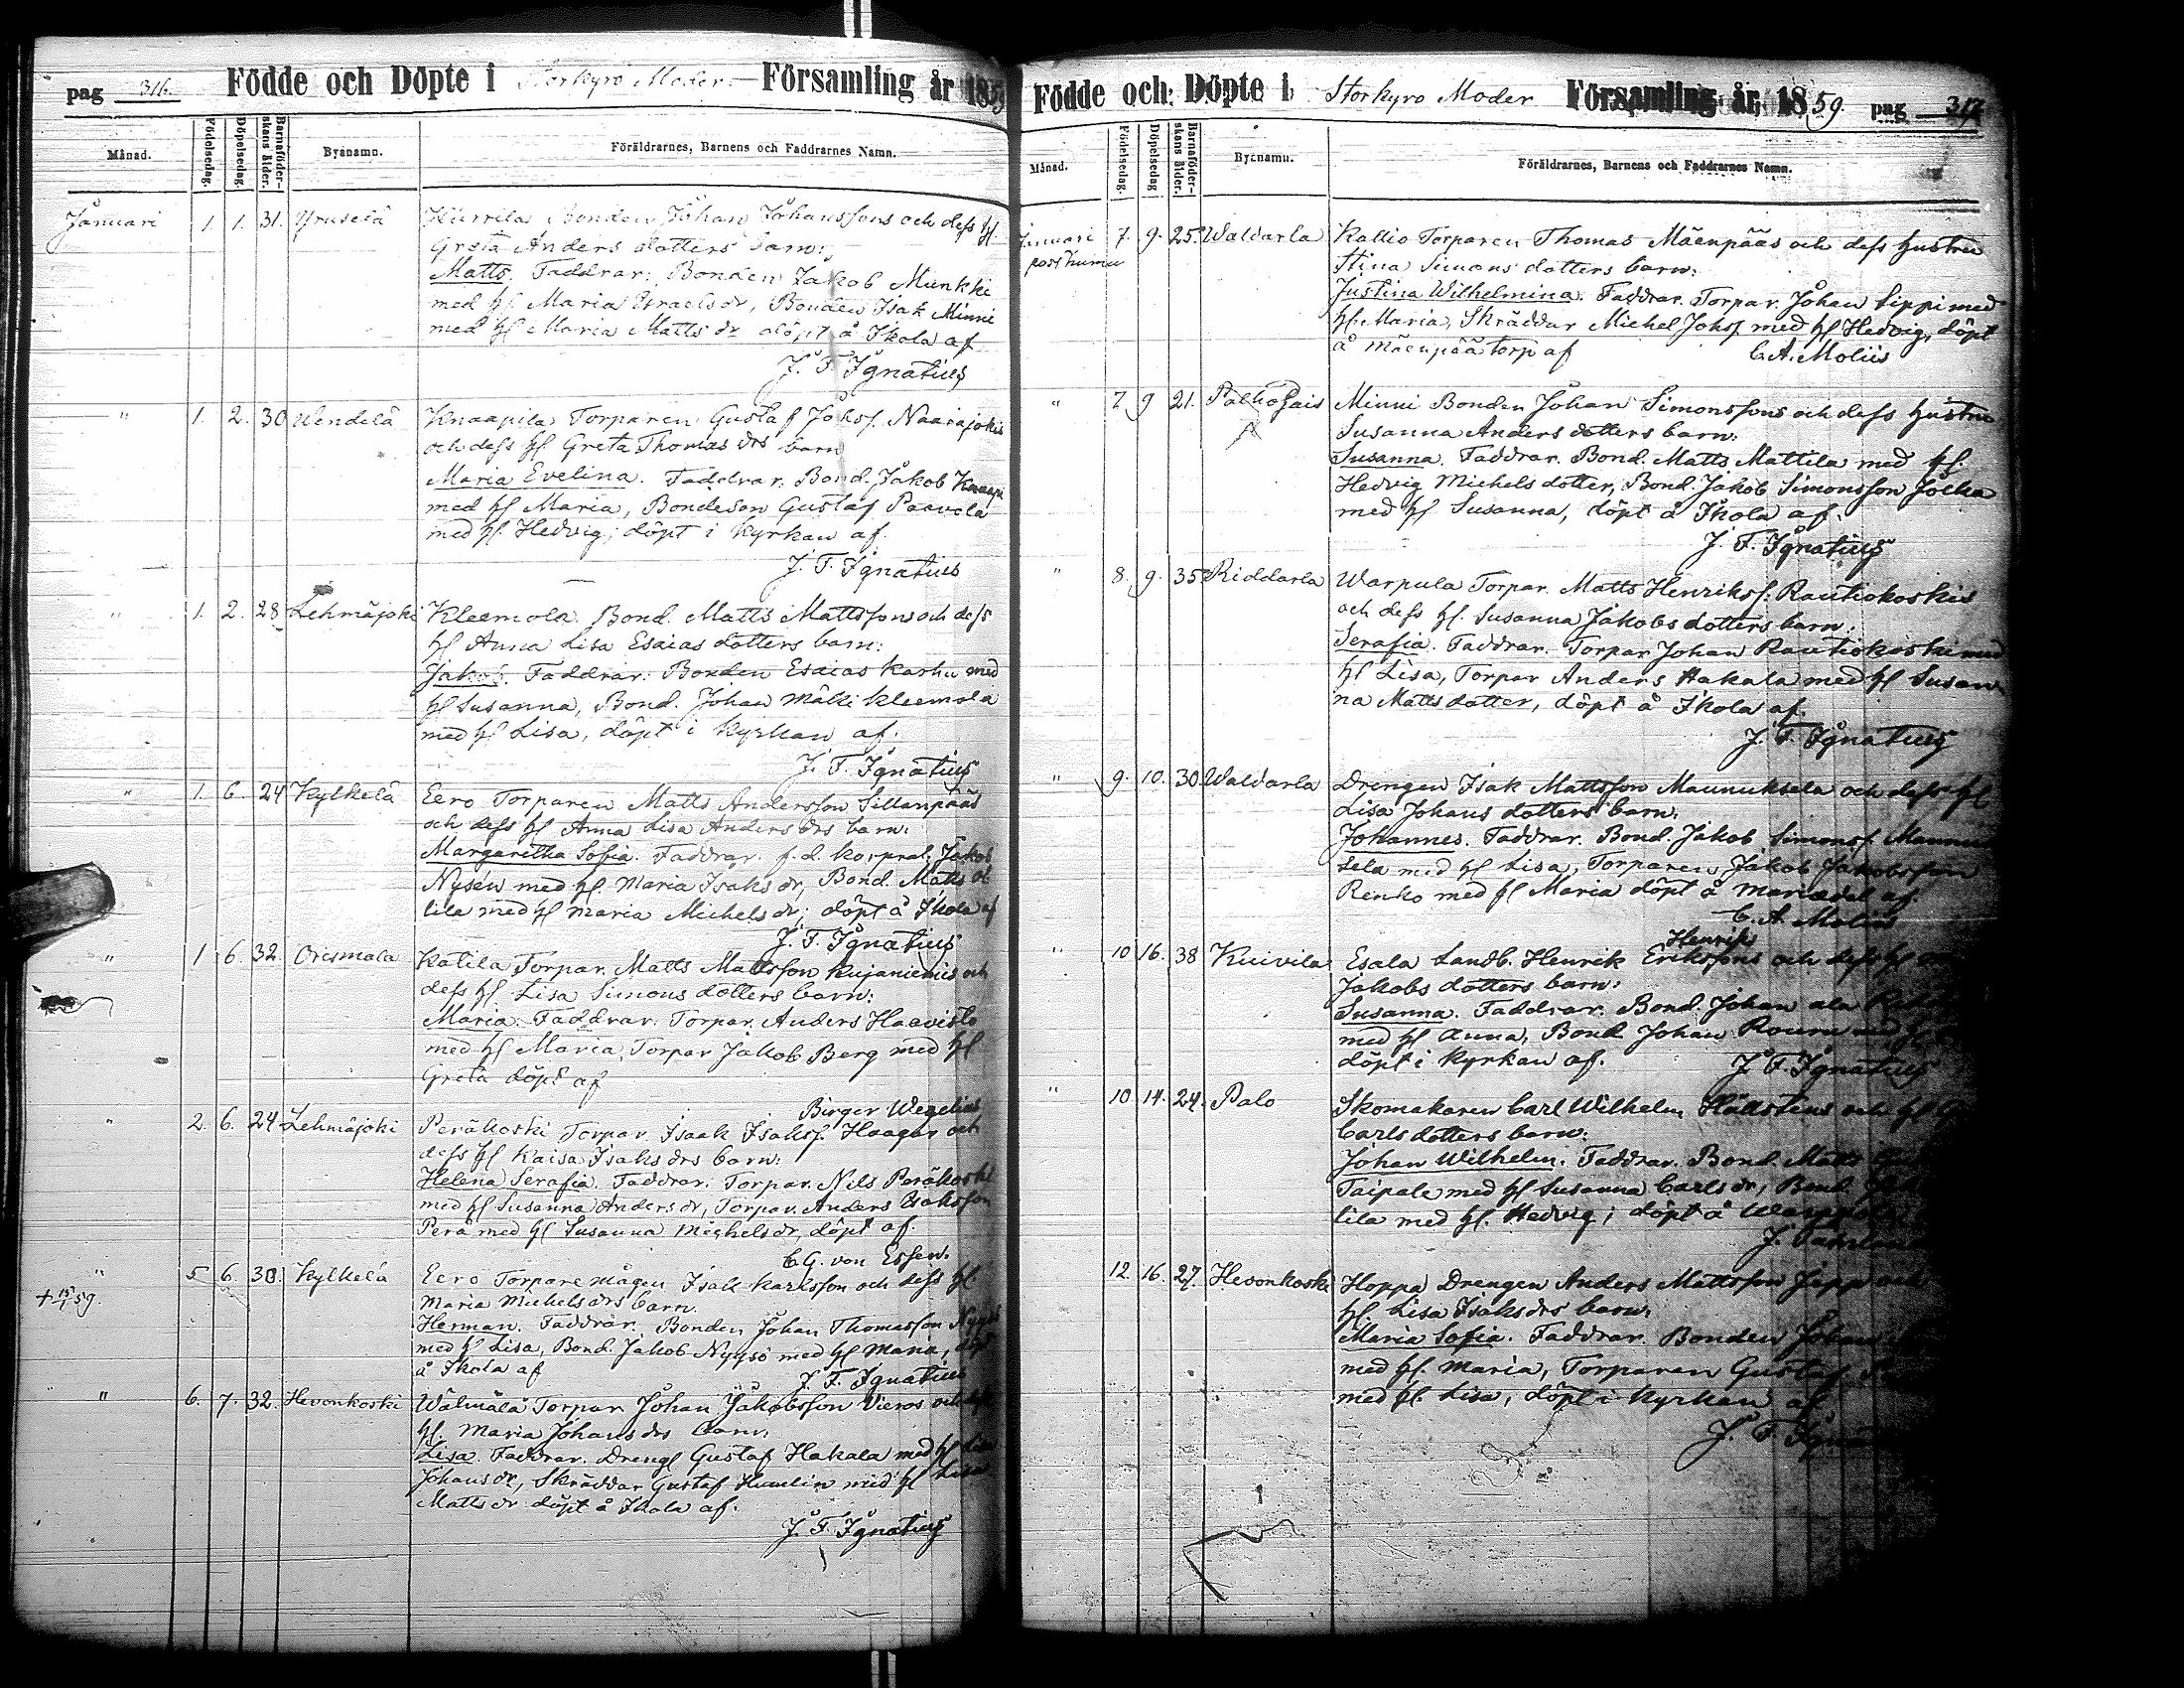 pag 316. Födde och Döpte i Storkyro Moder Församling år 1859
Månad. Födelsedag. Döpelsedag. Barnaföderskans ålder. Byanamn. Föräldrarnes, Barnens och Faddrarnes Namn.
Januari 1. 1. 31. Yruselä Bonden Johan Johanssons och dess hl.
Greta Anders dotters barn:
Matts. Faddrar: Bonden Jakob Munkki
med hl Maria Israels dr, Bonden Isak Minni
med hl Maria Matts dr döpt å Ikola af
J. F. Ignatius
" 1. 2. 30 Wendelä Knaapila Torparen Gustaf Johss. Naarajokis
och dess hl. Greta Thomas drs barn
Maria Evelina. Faddrar. Bond. Jakob Knaapi
med hl Maria, Bondeson Gustaf Paavola
med hl. Hedvig; döpt i kyrkan af.
J. F. Ignatius
" 1. 2. 28 Lehmäjoki Kleemola Bond. Matts Mattssons och dess
hl Anna Lisa Esaias dotters barn:
Jakob. Faddrar: Bonden Esaias Karhu med
hl Susanna, Bond. Johan Mäki Kleemola
med hl Lisa, döpt i kyrkan af.
J. F. Ignatius
" 1. 6. 24 Kylkelä Eero Torparen Matts Andersson Sillanpääs
och dess hl Anna Lisa Anders drs barn:
Margaretha Sofia. Faddrar. f.d. korpral. Jakob
Nysén med hl. Maria Isaks dr, Bond. Matts ol
lila med hl Maria Michels dr; döpt å Ikola af
J. F. Ignatius
" 1 6. 32. Orismala Katila Torpar. Matts Mattsson Kujaniemis och
dess hl. Lisa Simons dotters barn:
Maria. Faddrar: Torpar. Anders Haavisto
med hl Maria, Torpar Jakob Berg med hl
Greta döpt af
Birger Wegelius
" 2. 6. 24 Lehmäjoki Peräkoski Torpar. Isaak Isakss. Haagas och
dess hl Kaisa Isaks drs barn:
Helena Serafia. Faddrar. Torpar. Nils Peräkoski
med hl Susanna Anders dr, Torpar. Anders Isaksson
Perä med hl Susanna Michels dr, döpt af.
C. G. von Essen.
" 5 6. 30. Kylkelä Eero Torpare mågen Isak Karlsson och dess hl
+ 15/1 59. Maria Michels drs barn.
Herman. Faddrar. Bonden Johan Thomasson
med hl Lisa, Bond. Jakob Nygsö med hl Maria, döpt
å Ikola af
J. F. Ignatius
" 6. 7. 32. Hevonkoski Wälmälä Torpar Johan Jakobsson Vieros och dess
hl. Maria Johans drs barn:
Lisa. Faddrar. Drengl Gustaf Hakala med hl Lisa
Johans dr, Skräddar Gustaf Humlin med hl Lisa
Matts dr döpt å Ikola af.
J. F. Ignatius
Födde och Döpte i Storkyro Moder Församling år 1859. pag 317
Månad. Födelsedag. Döpelsedag Barnaföderskans ålder. Byanamn. Föräldrarnes, Barnens och Faddrarnes Namn.
Januari 7. 9. 25. Waldarla Kallio Torparen Thomas Mäenpääs och dess hustru
posthumu Stina Simons dotters barn:
Justina Wilhelmina. Faddrar. Torpar. Johan Sippi med
hl. Maria, Skräddar Michel Johss. med hl Hedvig, döpt
å Mäenpää torp af C. A. Moliis
" 7 9 21. Palhojais Minni Bonden Johan Simonssons och dess hustru
Susanna Anders dotters barn:
Susanna. Faddrar. Bond. Matts Mattila med hl.
Hedvig Michels dotter, Bond. Jakob Simonsson Jolka
med hl Susanna, döpt å Ikola af.
J. F. Ignatius
" 8. 9. 35 Riddarla Warpula Torpar. Matts Henrikss. Rautiokoskis
och dess hl. Susanna Jakobs dotters barn:
Serafia. Faddrar. Torpar Johan Rautiokoski med
hl Lisa, Torpar Anders Hakala med hl Susan
na Matts dotter, döpt å Ikola af
J. F. Ignatius
" 9. 10. 30 Waldarla Drengen Isak Mattsson Maunuksela och dess hl
Lisa Johans dotters barn:
Johannes. Faddrar. Bond. Jakob Simonss. Maunu
sela med hl Lisa, Torparen Jakob Jakobsson
Renko med hl Maria döpt å Mariedal af.
C. A. Moliis
Henrik
" 10 16. 38 Kuivila Esala Landb. Henrik Erikssons och dess hl
Jakobs dotters barn:
Susanna. Faddrar. Bond. Johan ala
med hl Anna, Bond Johan Rouru med
döpt i kyrkan af. J. F. Ignatius
" 10 14. 24. Palo Skomakaren Carl Wilhelm Hällstens och hl
Carls dotters barn:
Johan Wilhelm. Faddrar. Bond. Matts
Taipale med hl Susanna Carls dr, Bond.
lila med hl. Hedvig; döpt å
12. 16. 27. Hevonkoski Hoppa Drengen Anders Mattsson
hl. Lisa Isaks drs barn:
Maria Sofia. Faddrar. Bonden Johan
med hl. Maria, Torparen Gustaf
med hl. Lisa, döpt i kyrkan af
J. F. Ignatius